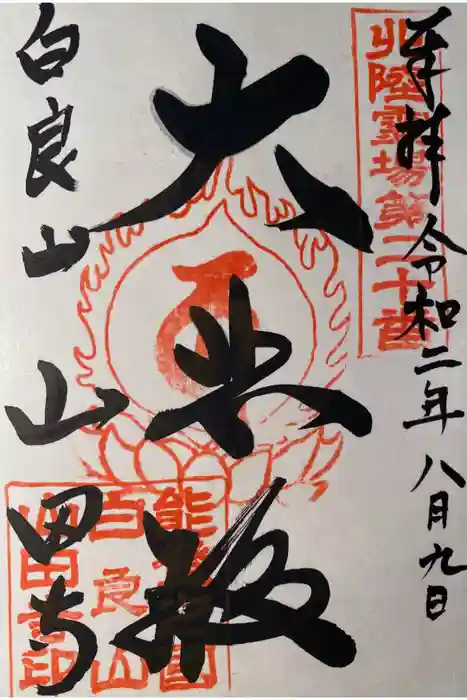 奉拝 令和二年八月九日
北陸霊場第二十番
大悲殿
白良山 山田寺
能登國
白良山
山田寺印